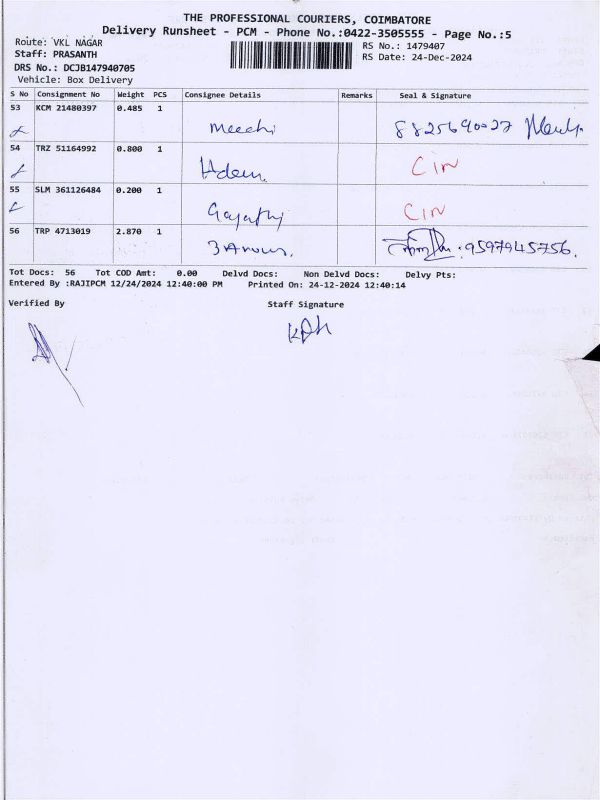 THE PROFESSIONAL COURIERS, COIMBATORE
Delivery Runsheet - PCM - Phone No.:0422-3505555 - Page No.:5
Route: VKL NAGAR
Staff: PRASANTH
DRS No.: DCJB147940705
Vehicle: Box Delivery
RS No.: 1479407
RS Date: 24-Dec-2024
S No Consignment No Weight PCS Consignee Details Remarks Seal & Signature
53 KCM 21480397 0.485 1
8825690027
54 TRZ 51164992 0.800 1
55 SLM 361126484 0.200 1 Gayathi
56 TRP 4713019 2.870 1
9597945756.
Tot Docs: 56 Tot COD Amt: 0.00 Delvd Docs: Non Delvd Docs: Delvy Pts:
Entered By :RAJIPCM 12/24/2024 12:40:00 PM Printed On: 24-12-2024 12:40:14
Verified By Staff Signature